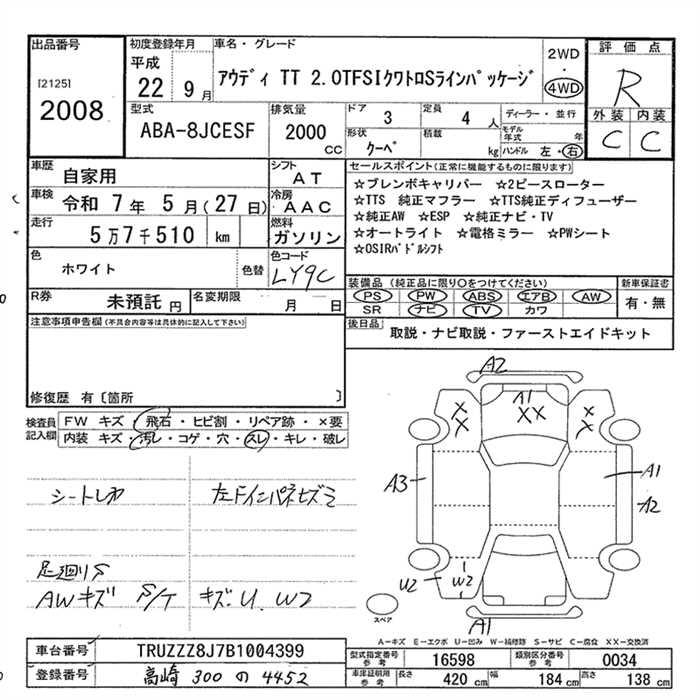 出品番号
[2125]
2008
初度登録年月
平成
22 9月
車名・グレード
アウディ TT 2.0TFSIクワトロSラインパッケージ
2WD
・
4WD
評価点
R
外装 内装
C C
型式
ABA-8JCESF
排気量
2000
CC
ドア
3
定員
4 人
形状
クーペ
積載
kg
ディーラー・並行
モデル年式 年
ハンドル 左・右
車歴
自家用
シフト
AT
車検
令和 7年 5月(27日)
冷房
AAC
走行
5万7千510 km
燃料
ガソリン
色
ホワイト
色替
色コード
LY9C
R券
未預託 円
名変期限
月 日
セールスポイント(正常に機能するものに限ります)
☆ブレンボキャリパー ☆2ピースローター
☆TTS 純正マフラー ☆TTS純正ディフューザー
☆純正AW ☆ESP ☆純正ナビ・TV
☆オートライト ☆電格ミラー ☆PWシート
☆OSIRパドルシフト
装備品 (純正品に限り〇をつけてください)
PS PW ABS エアB AW
SR ナビ TV カワ
新車保証書
有・無
後日品
取説・ナビ取説・ファーストエイドキット
注意事項申告欄(不具合内容等は具体的に記入して下さい)
修復歴 有〔箇所 〕
検査員記入欄
FW キズ・飛石・ヒビ割・リペア跡・×要
内装 キズ・汚レ・コゲ・穴・スレ・キレ・破レ
シートしわ
左ドインパネセズミ
足廻りS
AWキズ S/ケ キズ.U.W2
A2
A1
XX
X X
X X
A3
A1
A2
U2
W2
A1
スペア
A―キズ E―エクボ U―凹み W―補修跡 S―サビ C―腐食 XX―交換済
車台番号
TRUZZZ8J7B1004399
登録番号
高崎 300 の 4452
型式指定番号
参考
16598
類別区分番号
参考
0034
車庫証明用
参考
長さ 420 cm
幅 184 cm
高さ 138 cm